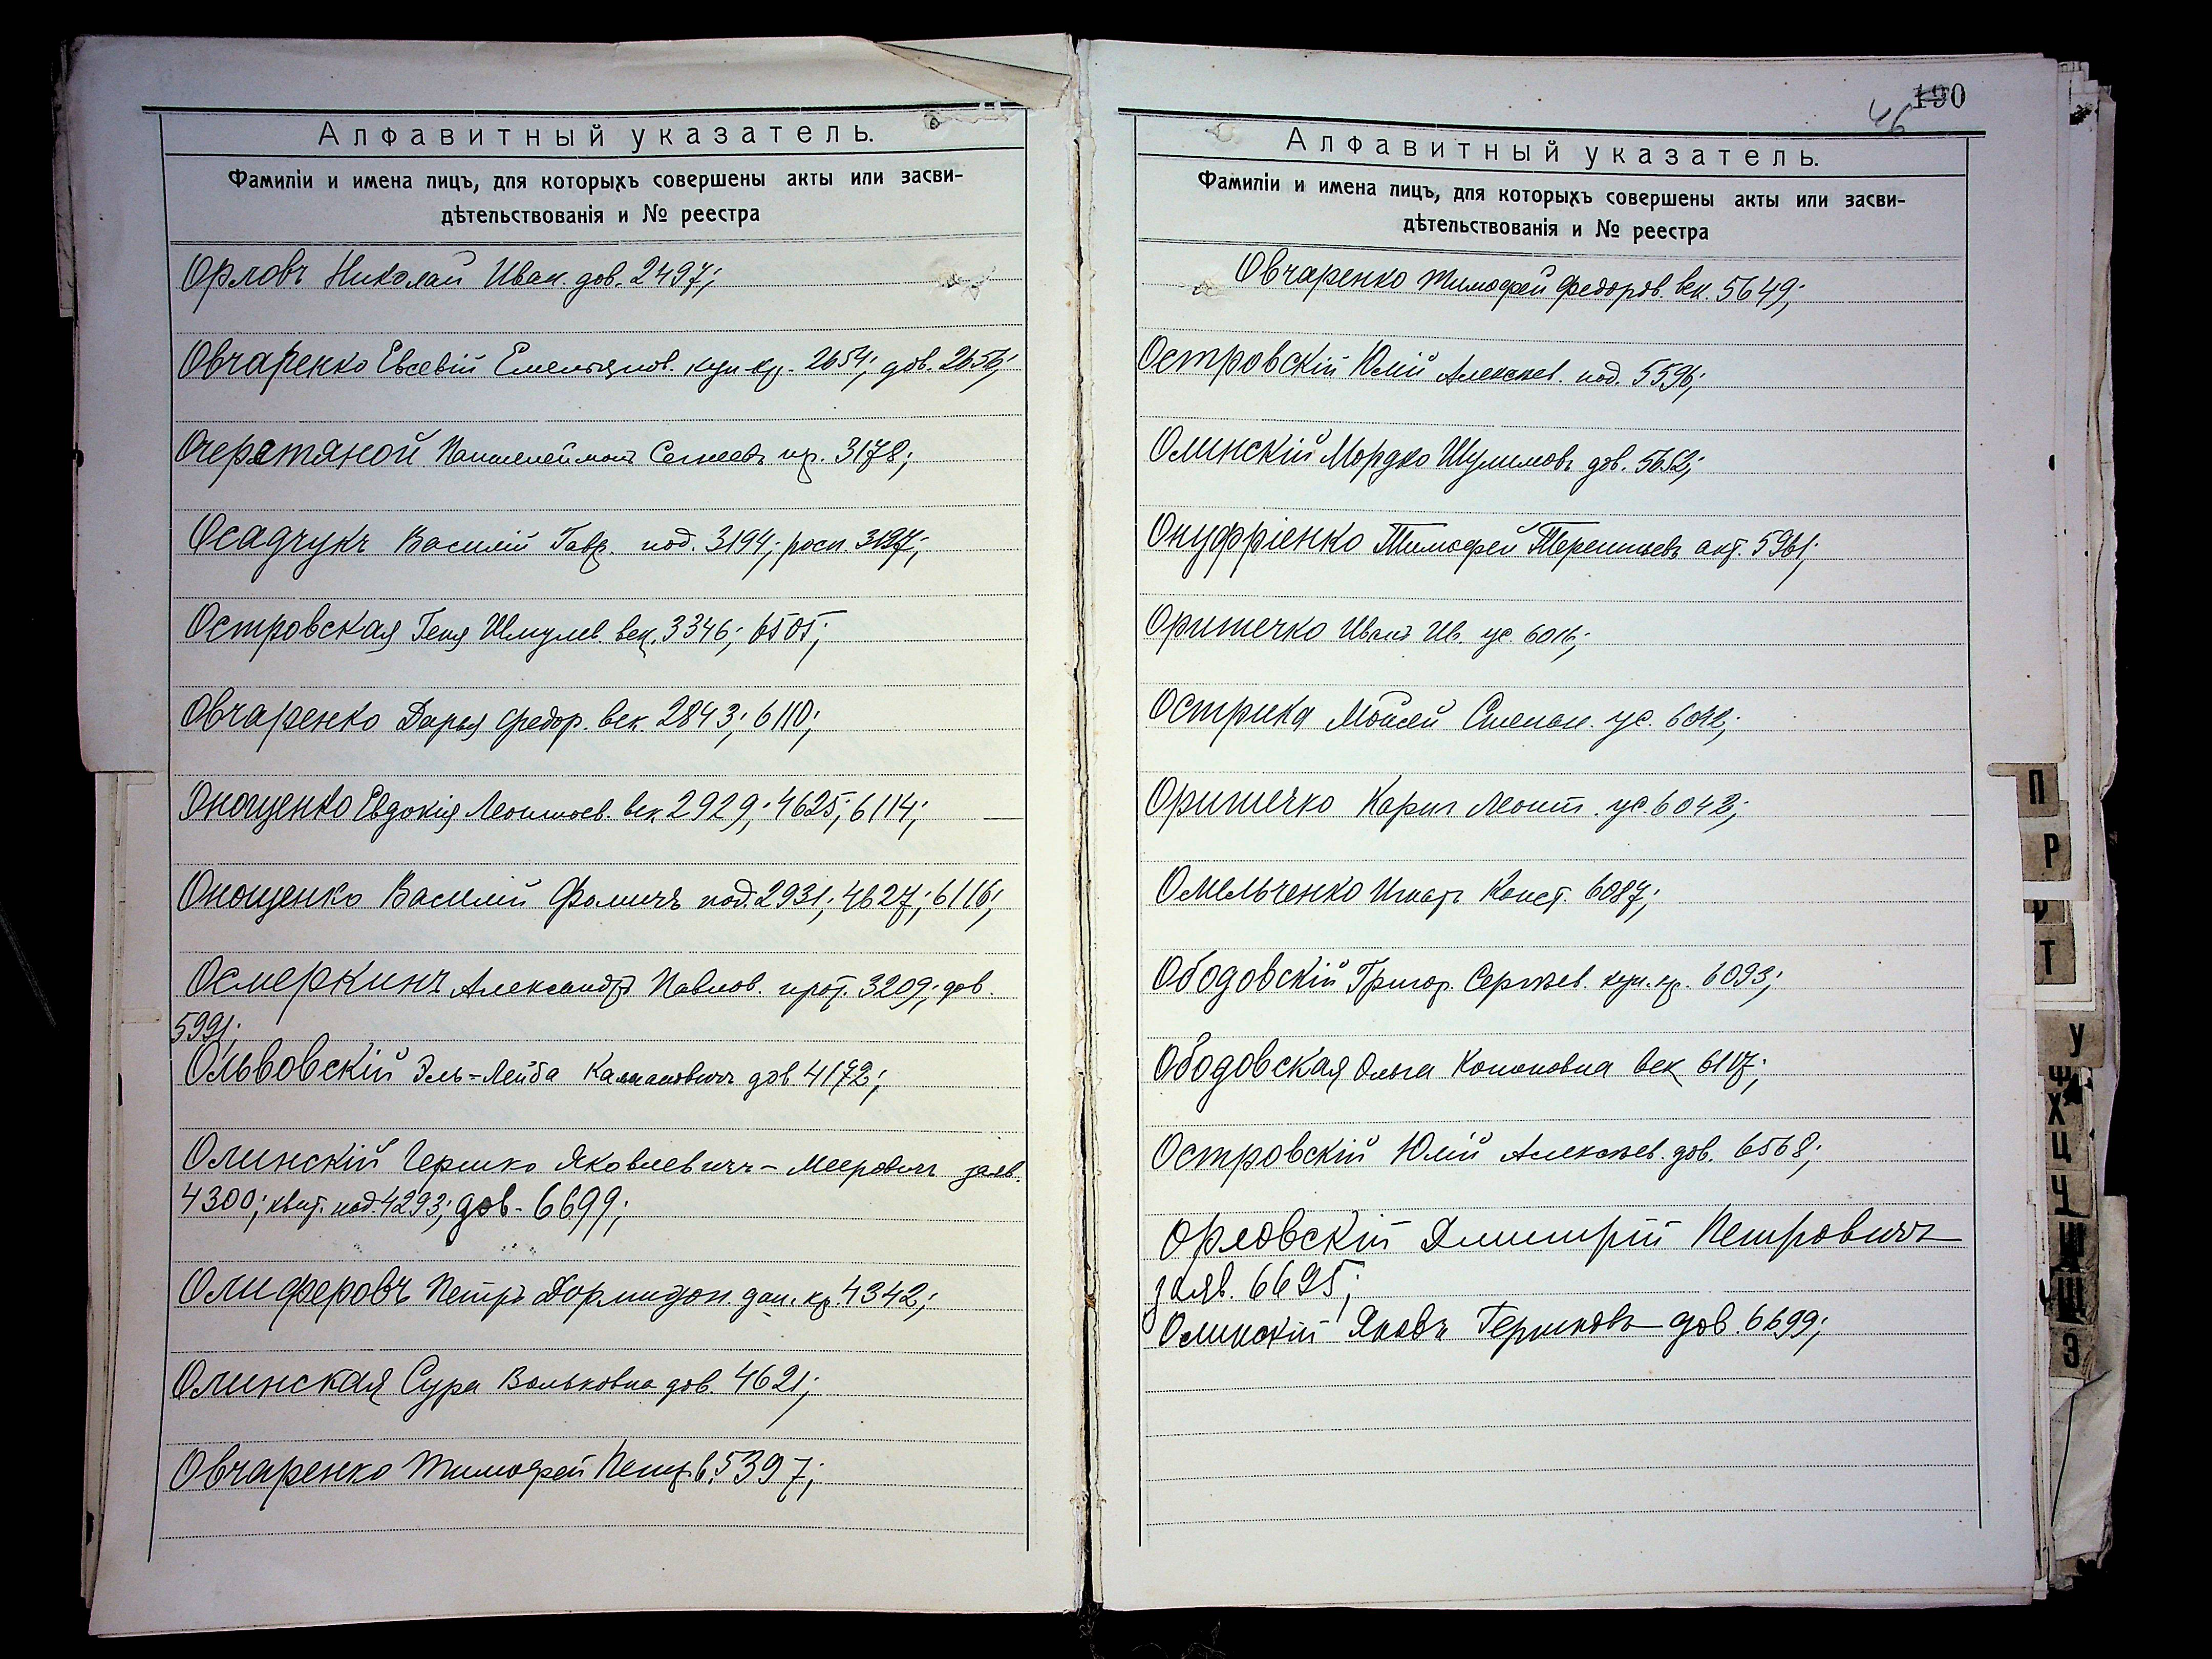 Алфавитный указатель.
Фамиліи и имена лицъ, для которыхъ совершены акты или засви-
дѣтельствованія и № реестра
Орловъ Николай Иван. дов. 2497;
Овчаренко Евсевій Емельянов. куп.кр. 2654; дов. 2656;
Очеретяной Пантелеймонъ пр. 3178;
Осадчукъ Василій Гавр. под. 3194; росп.
Островская Геня Шмулев. век. 3346; 6505;
Овчаренко Дарья Федор. век. 2843; 6110;
Онощенко Евдокія Леонтьев. век. 2929; 4625; 6114;
Онощенко Василій Фомичъ под. 2931; 4627; 6116;
Осмеркинъ Александръ Павлов. прот. 3209; дов.
5991;
Ольвовскій Эль=Лейба Калмановичъ дов 4172;
Олинскій Гершко Яковлевичъ-Мееровичъ заяв.
4300; квит. под. 4293; дов- 6699;
Олиферовъ Петръ Дормидон. дан. кр. 4342;
Олинская Сура Вольковна дов. 4621;
Овчаренко Тимофей Петр. в. 5397;
190
46
Алфавитный указатель.
Фамиліи и имена лицъ, для которыхъ совершены акты или засви-
дѣтельствованія и № реестра
Овчаренко Тимофей Федоров. век. 5649;
Островскій Юлій Алексѣев. под. 5596;
Олинскій Мордко Шулимовъ дов. 5652;
Онуфріенко Тимофей Терентьевъ акт. 5961;
Оришечко Иванъ Ив. ус. 6016;
Острика Мойсей Степан. ус.
Оришечко Карпъ Леонт. ус. 6042;
Омельченко Игнатъ Конст. 6087;
Ободовскій Григор. Сергѣев. куп.кр. 6093;
Ободовская Ольга Кононовна век 6117;
Островскій Юлій Алексѣев. дов. 6568;
Орловскій Дмитрій Петровичъ
заяв. 6695;
Олинскій Яковъ Гершковъ дов. 6699;
П
Р
Т
У
Ф
Х
Ц
Ч
Ш
Щ
Э